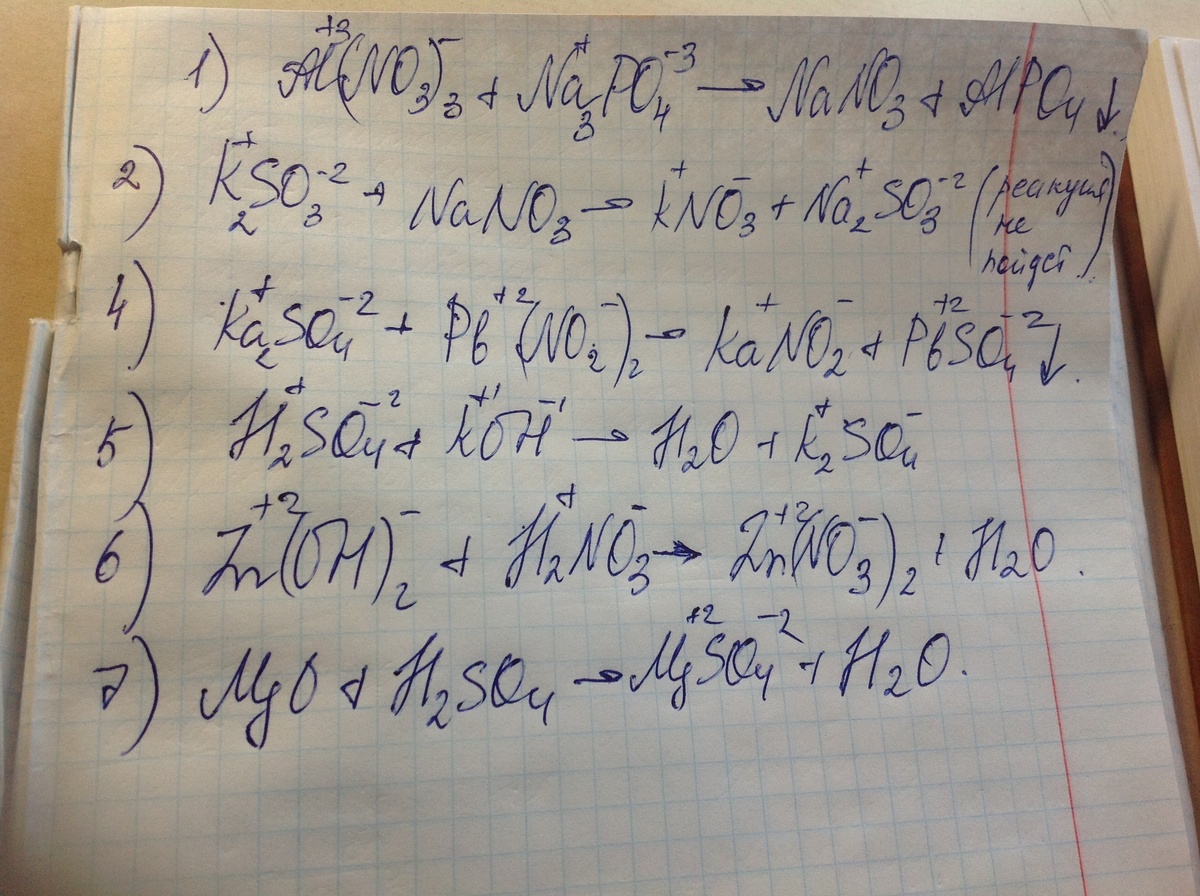 1) Al⁺³(NO₃)⁻₃ + Na⁺₃PO₄⁻³ → NaNO₃ + AlPO₄↓.
2) K⁺₂SO₃⁻² + NaNO₃ → K⁺NO₃⁻ + Na⁺₂SO₃⁻² (реакция не пойдет)
4) Ka⁺₂SO₄⁻² + Pb⁺²(NO₂⁻)₂ → Ka⁺NO₂⁻ + Pb⁺²SO₄⁻²↓.
5) H⁺₂SO₄⁻² + K⁺¹OH⁻¹ → H₂O + K⁺₂SO₄⁻
6) Zn⁺²(OH)⁻₂ + H⁺₂NO₃⁻ → Zn⁺²(NO₃⁻)₂ + H₂O.
7) MgO + H₂SO₄ → Mg⁺²SO₄⁻² + H₂O.